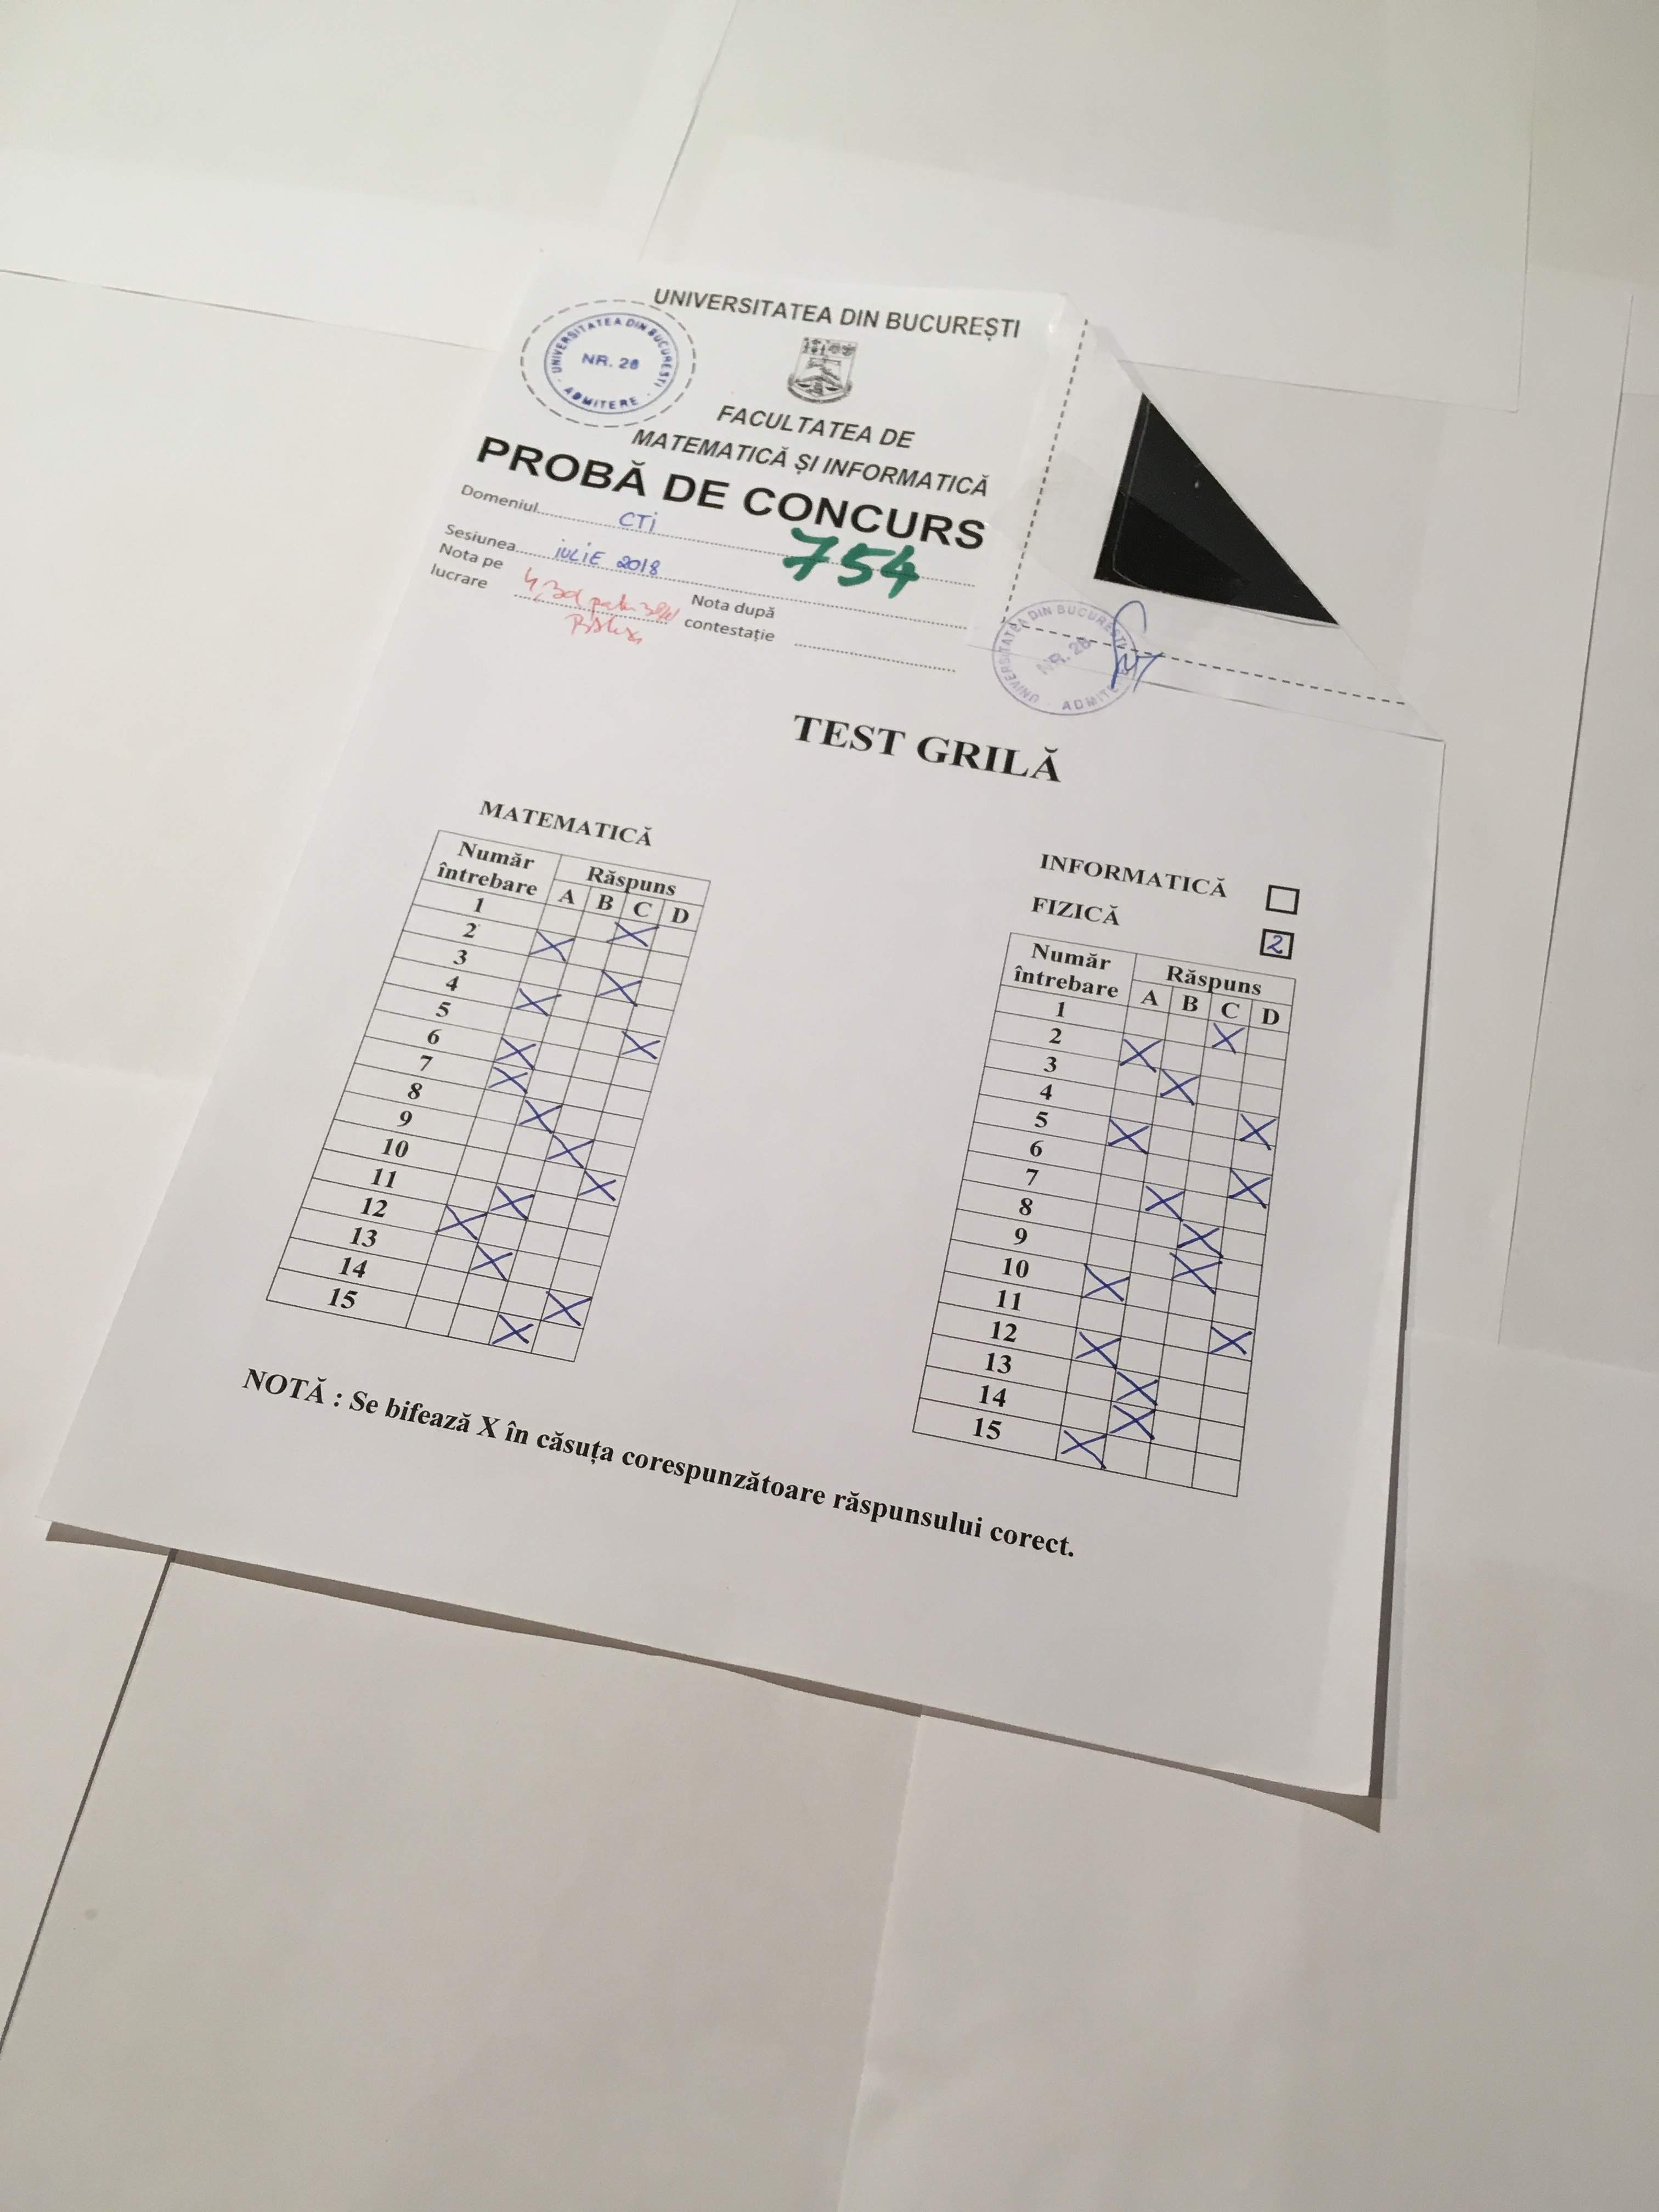 UNIVERSITATEA DIN BUCUREȘTI
UNIVERSITATEA DIN BUCUREȘTI
NR. 28
ADMITERE
FACULTATEA DE
MATEMATICĂ ȘI INFORMATICĂ
PROBĂ DE CONCURS
Domeniul CTi
754
Sesiunea iULiE 2018
Nota pe
lucrare
Nota după
contestație
UNIVERSITATEA DIN BUCUREȘTI
NR. 28
ADMITERE
TEST GRILĂ
MATEMATICĂ
Număr
întrebare
Răspuns
A B C D
1 X
2 X
3 X
4 X
5 X
6 X
7 X
8 X
9 X
10 X
11 X
12 X
13 X
14 X
15 X
INFORMATICĂ
FIZICĂ 2
Număr
întrebare
Răspuns
A B C D
1 X
2 X
3 X
4 X
5 X
6 X
7 X
8 X
9 X
10 X
11 X
12 X
13 X
14 X
15 X
NOTĂ : Se bifează X în căsuța corespunzătoare răspunsului corect.